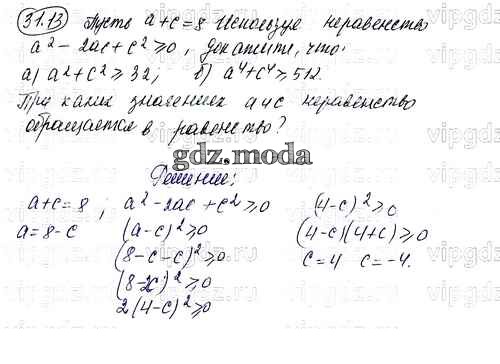 31.13) Пусть a+c=8 Используя неравенство
a² - 2ac + c² ≥ 0, докажите, что:
а) a² + c² ≥ 32; б) a⁴ + c⁴ ≥ 512.
При каких значениях a и c неравенство
обращается в равенство?
gdz.moda
Решение:
a+c=8 ; a² - 2ac + c² ≥ 0
a=8-c (a-c)² ≥ 0
(8-c-c)² ≥ 0
(8-2c)² ≥ 0
2(4-c)² ≥ 0
(4-c)² ≥ 0
(4-c)(4+c) ≥ 0
c=4 c=-4.